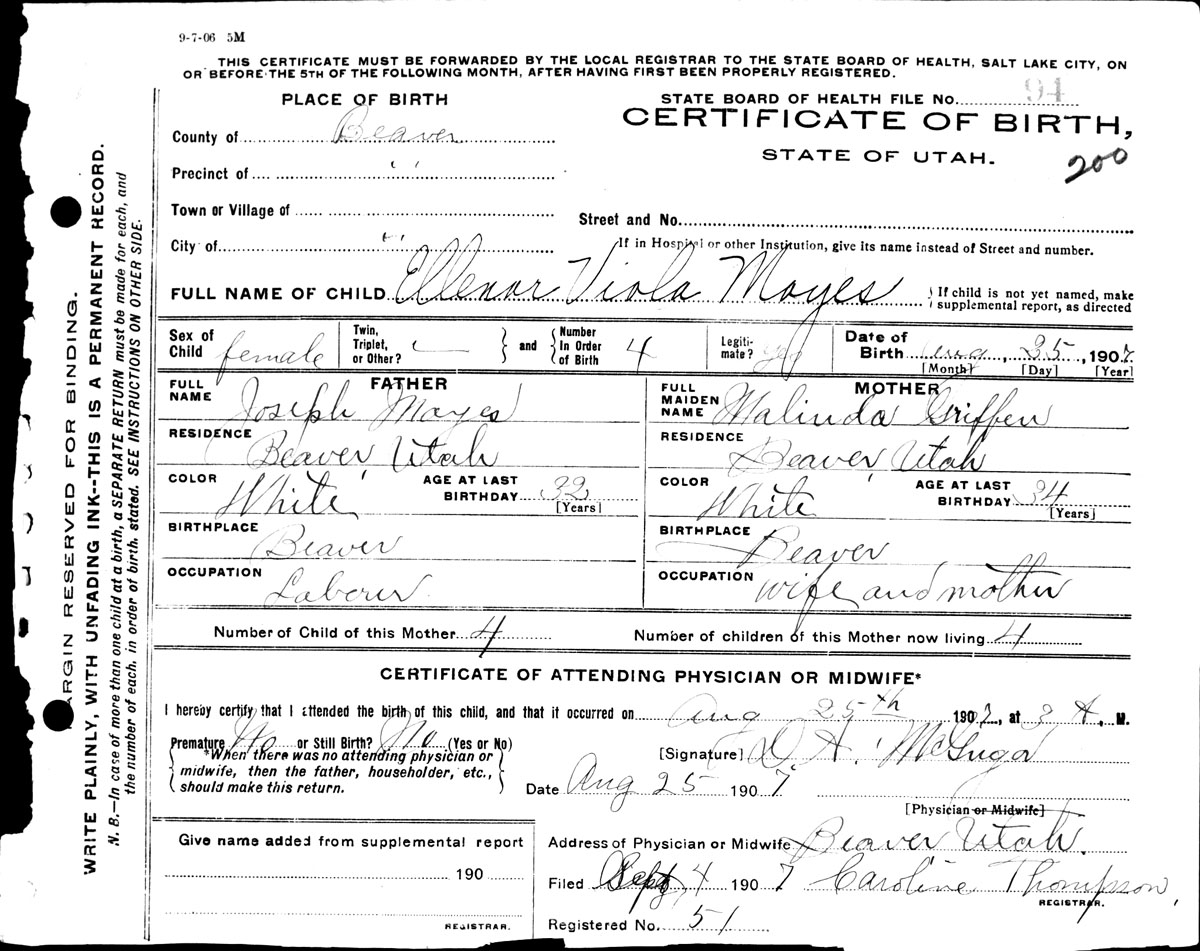 9-7-06 5M
THIS CERTIFICATE MUST BE FORWARDED BY THE LOCAL REGISTRAR TO THE STATE BOARD OF HEALTH, SALT LAKE CITY, ON
OR BEFORE THE 5TH OF THE FOLLOWING MONTH, AFTER HAVING FIRST BEEN PROPERLY REGISTERED.
PLACE OF BIRTH
County of Beaver
Precinct of " "
Town or Village of
City of " "
STATE BOARD OF HEALTH FILE No. 94
CERTIFICATE OF BIRTH,
STATE OF UTAH.
200
Street and No.
If in Hospital or other Institution, give its name instead of Street and number.
FULL NAME OF CHILD Ellenor Viola Mayes
If child is not yet named, make
supplemental report, as directed
Sex of Child female
Twin, Triplet, or Other?
and
Number In Order of Birth 4
Legiti-mate? yes
Date of Birth Aug 25, 1907
[Month] [Day] [Year]
FATHER
FULL NAME Joseph Mayes
RESIDENCE Beaver, Utah
COLOR White
AGE AT LAST BIRTHDAY 32
[Years]
BIRTHPLACE Beaver
OCCUPATION Laborer
MOTHER
FULL MAIDEN NAME Malinda Griffen
RESIDENCE Beaver, Utah
COLOR White
AGE AT LAST BIRTHDAY 34
[Years]
BIRTHPLACE Beaver
OCCUPATION wife and mother
Number of Child of this Mother 4
Number of children of this Mother now living 4
CERTIFICATE OF ATTENDING PHYSICIAN OR MIDWIFE*
I hereby certify that I attended the birth of this child, and that it occurred on Aug 25th 1907, at 3 A. M.
Premature No or Still Birth? No (Yes or No)
*When there was no attending physician or
midwife, then the father, householder, etc.,
should make this return.
[Signature] D. A. McGregor
Date Aug 25 1907
[Physician or Midwife]
Give name added from supplemental report
190
REGISTRAR.
Address of Physician or Midwife Beaver Utah.
Filed Sept 4 1907 Caroline Thompson,
REGISTRAR.
Registered No. 51
ARGIN RESERVED FOR BINDING.
WRITE PLAINLY, WITH UNFADING INK--THIS IS A PERMANENT RECORD.
N. B.—In case of more than one child at a birth, a SEPARATE RETURN must be made for each, and
the number of each, in order of birth, stated. SEE INSTRUCTIONS ON OTHER SIDE.